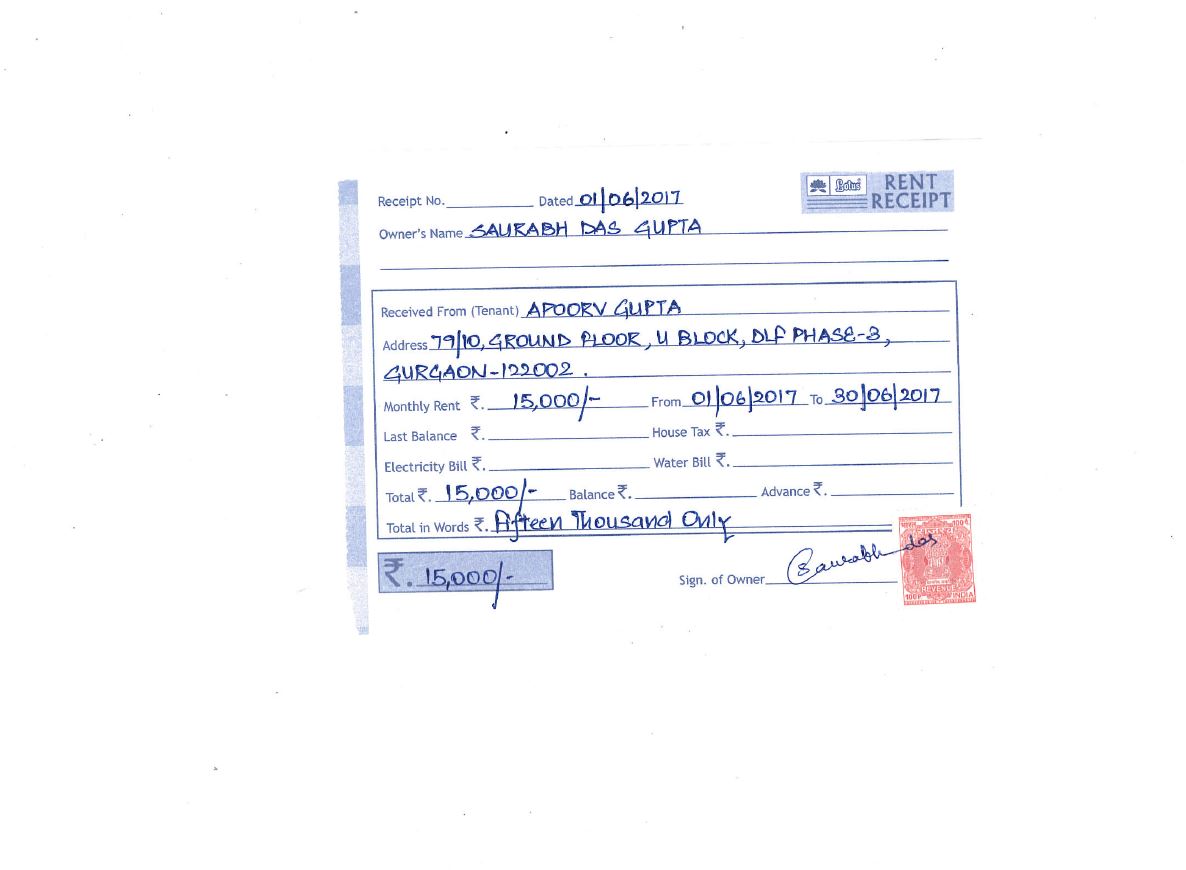 Receipt No. Dated 01/06/2017
Lotus RENT RECEIPT
Owner's Name SAURABH DAS GUPTA
Received From (Tenant) APOORV GUPTA
Address 79/10, GROUND FLOOR, U BLOCK, DLF PHASE-3,
GURGAON-122002.
Monthly Rent ₹. 15,000/- From 01/06/2017 To 30/06/2017
Last Balance ₹. House Tax ₹.
Electricity Bill ₹. Water Bill ₹.
Total ₹. 15,000/- Balance ₹. Advance ₹.
Total in Words ₹. Fifteen Thousand Only
₹. 15,000/-
Sign. of Owner Saurabh das
भारत 100
REVENUE
100P INDIA